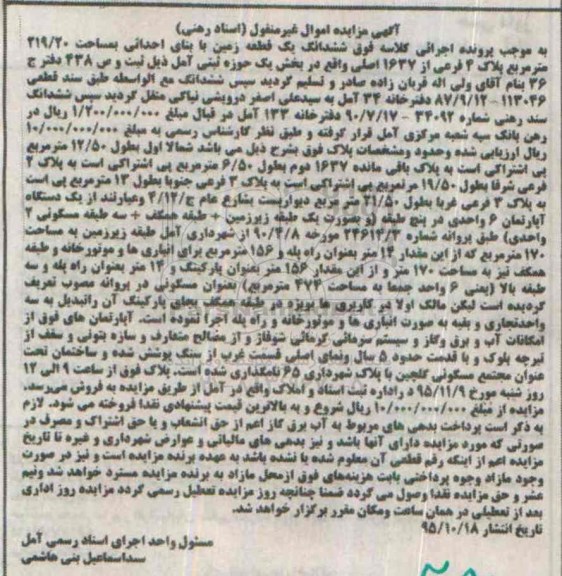 آگهی مزایده اموال غیرمنقول (اسناد رهنی)
به موجب پرونده اجرائی کلاسه فوق ششدانگ یک قطعه زمین با بنای احداثی بمساحت ۲۱۹/۲۰
مترمربع پلاک ۴ فرعی از ۱۶۳۷ اصلی واقع در بخش یک حوزه ثبتی آمل ذیل ثبت و ص ۴۳۸ دفتر ج
۳۶ بنام آقای ولی اله قربان زاده صادر و تسلیم گردید سپس ششدانگ مع الواسطه طبق سند قطعی
۱۱۳۰۴۶ - ۸۷/۹/۱۲ دفترخانه ۳۴ آمل به سیدعلی اصغر درویشی نیاکی منتقل گردید سپس ششدانگ
سند رهنی شماره ۳۴۰۹۲ - ۹۰/۷/۱۷ دفترخانه ۱۳۳ آمل در قبال مبلغ ۱/۲۰۰/۰۰۰/۰۰۰ ریال در
رهن بانک سپه شعبه مرکزی آمل قرار گرفته و طبق نظر کارشناس رسمی به مبلغ ۱۰/۰۰۰/۰۰۰/۰۰۰
ریال ارزیابی شده وحدود ومشخصات پلاک فوق بشرح ذیل می باشد شمالا اول بطول ۱۲/۵۰ مترمربع
پی اشتراکی است به پلاک باقی مانده ۱۶۳۷ دوم بطول ۶/۵۰ مترمربع پی اشتراکی است به پلاک ۲
فرعی شرقا بطول ۱۹/۵۰ مترمربع پی اشتراکی است به پلاک ۳ فرعی جنوبا بطول ۱۳ مترمربع پی است
به پلاک ۳ فرعی غربا بطول ۲۱/۵۰ متر مربع دیواریست بشارع عام ج/۴/۱۲ وعبارتند از یک دستگاه
آپارتمان ۶ واحدی در پنج طبقه (و بصورت یک طبقه زیرزمین + طبقه همکف + سه طبقه مسکونی ۲
واحدی) طبق پروانه شماره ۲۴۶۱۴/۳ مورخه ۹۰/۴/۸ از شهرداری آمل طبقه زیرزمین به مساحت
۱۷۰ مترمربع که از این مقدار ۱۴ متر بعنوان راه پله و ۱۵۶ مترمربع برای انباری ها و موتورخانه و طبقه
همکف نیز به مساحت ۱۷۰ متر و از این مقدار ۱۵۶ متر بعنوان پارکینگ و ۱۴ متر بعنوان راه پله و سه
طبقه بالا (یعنی ۶ واحد جمعا به مساحت ۴۷۴ مترمربع) بعنوان مسکونی در پروانه مصوب تعریف
گردیده است لیکن مالک اولا در کاربری ها بویژه در طبقه همکف بجای پارکینگ آن راتبدیل به سه
واحدتجاری و بقیه به صورت انباری ها و موتورخانه و راه پله اجرا نموده است. آپارتمان های فوق از
امکانات آب و برق وگاز و سیستم سرمائی گرمائی شوفاژ و از مصالح متعارف و سازه بتونی و سقف از
تیرچه بلوک و با قدمت حدود ۵ سال ونمای اصلی قسمت غرب از سنگ پوشش شده و ساختمان تحت
عنوان مجتمع مسکونی گلچین با پلاک شهرداری ۶۵ نامگذاری شده است. پلاک فوق از ساعت ۹ الی ۱۲
روز شنبه مورخ ۹۵/۱۱/۹ د راداره ثبت اسناد و املاک واقع در آمل از طریق مزایده به فروش می‌رسد.
مزایده از مبلغ ۱۰/۰۰۰/۰۰۰/۰۰۰ ریال شروع و به بالاترین قیمت پیشنهادی نقدا فروخته می شود. لازم
به ذکر است پرداخت بدهی های مربوط به آب برق گاز اعم از حق انشعاب و یا حق اشتراک و مصرف در
صورتی که مورد مزایده دارای آنها باشد و نیز بدهی های مالیاتی و عوارض شهرداری و غیره تا تاریخ
مزایده اعم از اینکه رقم قطعی آن معلوم شده یا نشده باشد به عهده برنده مزایده است و نیز در صورت
وجود مازاد وجوه پرداختی بابت هزینه‌های فوق ازمحل مازاد به برنده مزایده مسترد خواهد شد ونیم
عشر و حق مزایده نقدا وصول می گردد ضمنا چنانچه روز مزایده تعطیل رسمی گردد مزایده روز اداری
بعد از تعطیلی در همان ساعت ومکان مقرر برگزار خواهد شد.
تاریخ انتشار ۹۵/۱۰/۱۸
مسئول واحد اجرای اسناد رسمی آمل
سیداسماعیل بنی هاشمی